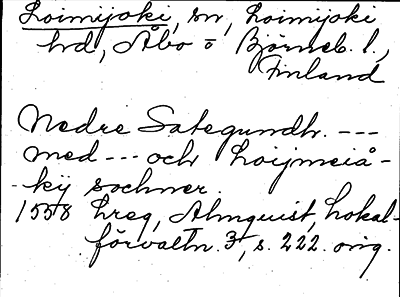 Loimijoki, sn, Loimijoki
hd, Åbo o Björneb. l.,
Finland
Nedre Sategundh. ---
med --- och Loijmeiå-
-kÿ sochner.
1558 Lreg, Almquist, Lokal-
förvaltn. 3, s. 222. orig.